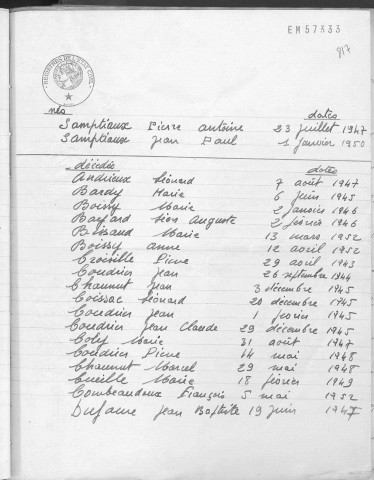 EM57333
817
nés dates
Samptiaux Pierre Antoine 23 juillet 1947
Samptiaux Jean Paul 1 janvier 1950
décédés dates
Andrieux Léonard 7 août 1947
Bardy Marie 6 juin 1945
Boissy Marie 2 janvier 1946
Bayard Léon Auguste 2 février 1946
Brissaud Marie 13 mars 1952
Boissy Anne 12 avril 1952
Croisille Pierre 29 avril 1943
Coudrier Jean 26 septembre 1944
Chaunut Jean 3 décembre 1945
Coissac Léonard 20 décembre 1945
Coudrier Jean 1 février 1945
Coudrier Jean Claude 29 décembre 1945
Coly Marie 31 août 1947
Coudrier Pierre 14 mai 1948
Chaunut Marcel 29 mai 1948
Cueille Marie 18 février 1949
Combeaudoux François 5 mai 1952
Dufaure Jean Baptiste 19 juin 1947